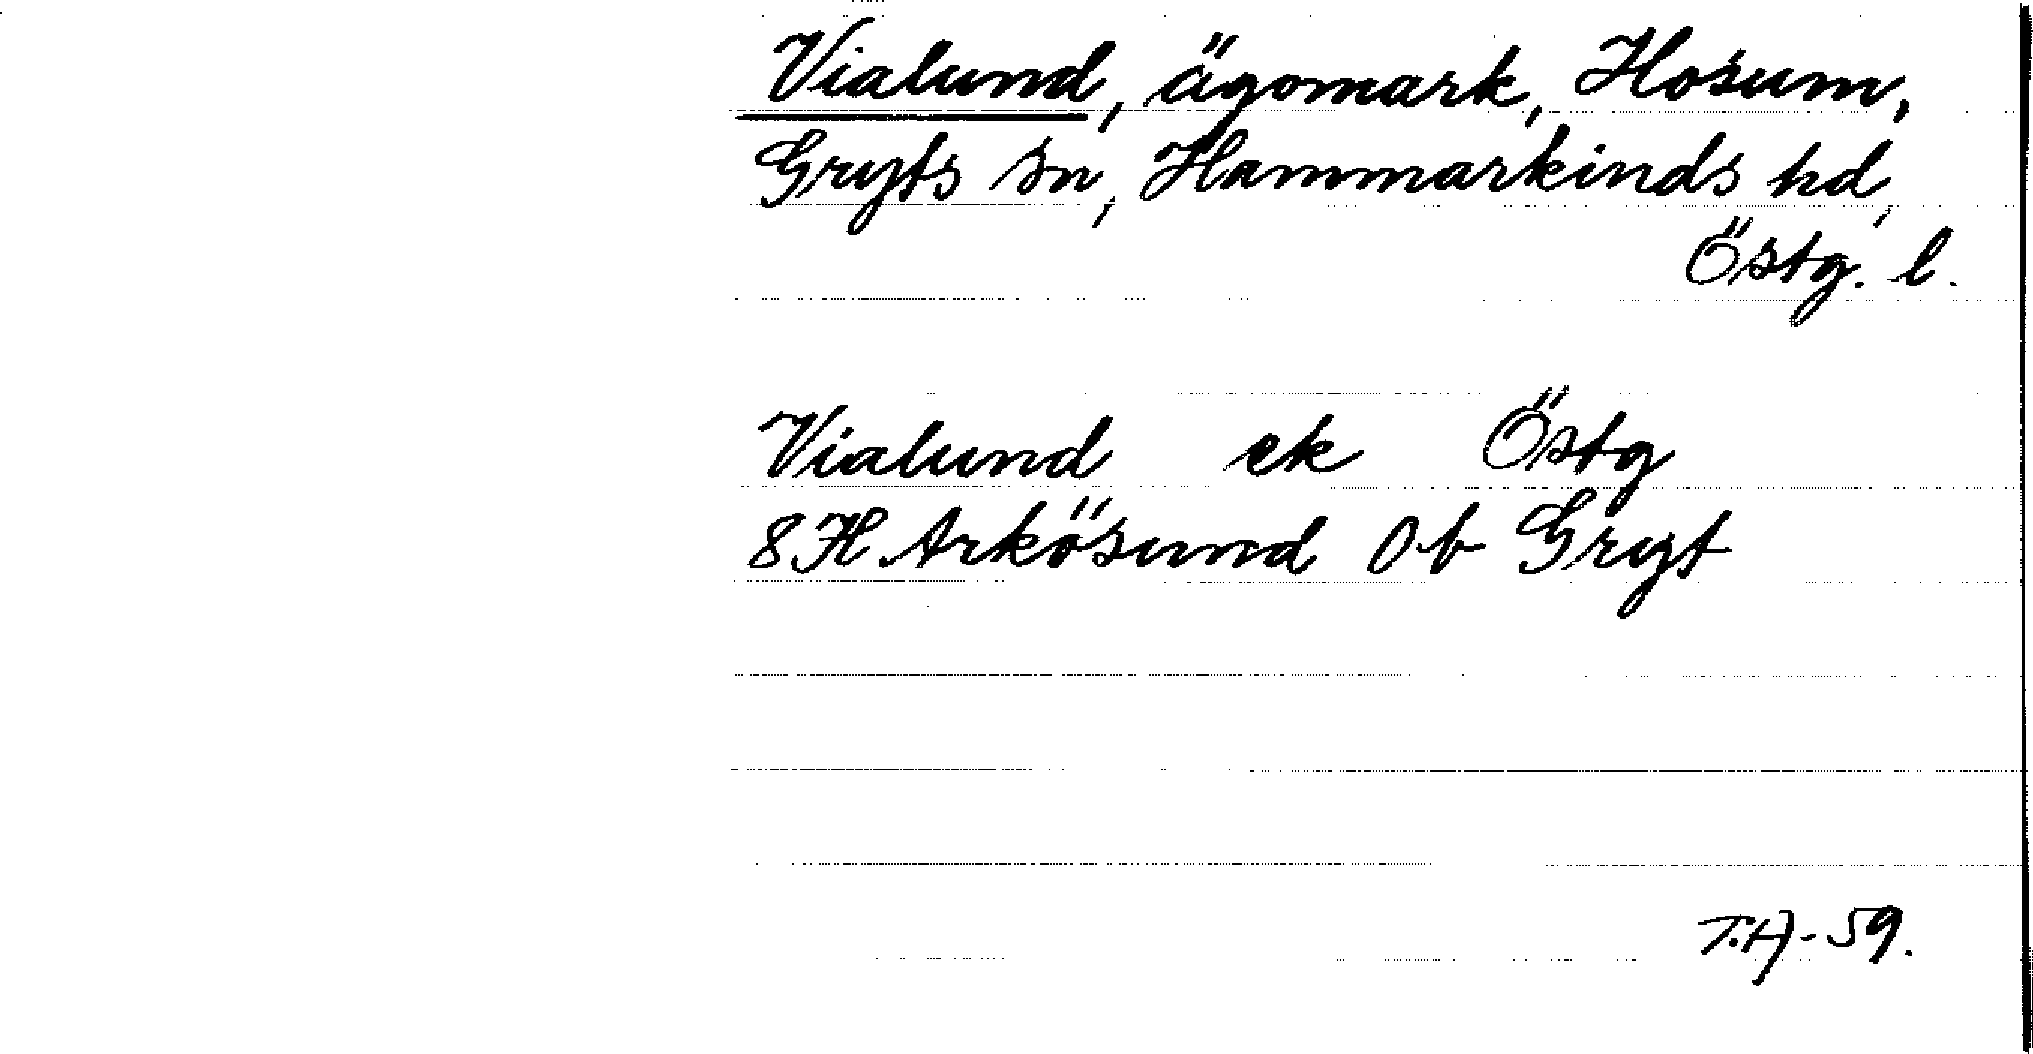 Vialund, ägomark, Hosum,
Gryts sn, Hammarkinds hd,
Östg. l.
Vialund ek Östg
8H Arkösund Ob Gryt
T.H-59.